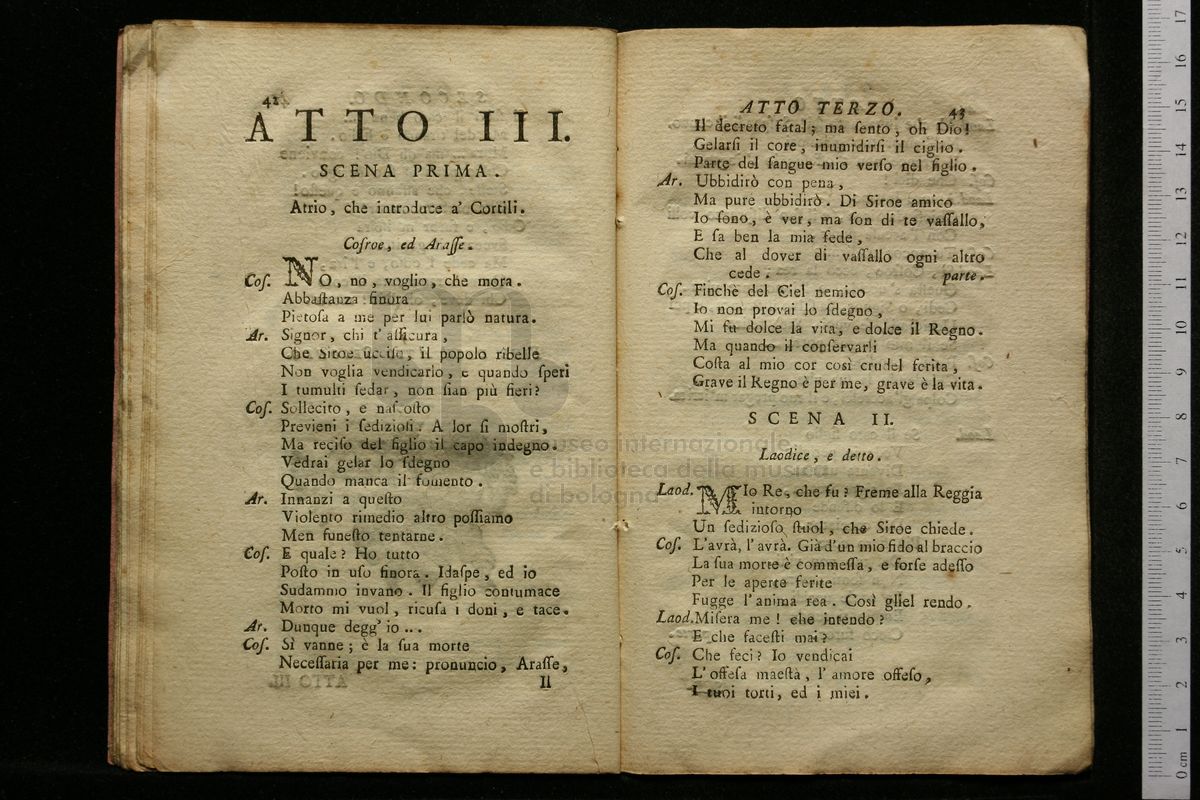 42
ATTO III.
SCENA PRIMA.
Atrio, che introduce a' Cortili.
Coſroe, ed Araſſe.
Coſ. NO, no, voglio, che mora.
Abbaſtanza finora
Pietoſa a me per lui parlò natura.
Ar. Signor, chi t' aſſicura,
Che Siroe ucciſo, il popolo ribelle
Non voglia vendicarlo, e quando ſperi
I tumulti ſedar, non ſian più fieri?
Coſ. Sollecito, e naſcoſto
Previeni i ſedizioſi. A lor ſi moſtri,
Ma reciſo del figlio il capo indegno.
Vedrai gelar lo ſdegno
Quando manca il fomento.
Ar. Innanzi a queſto
Violento rimedio altro poſſiamo
Men funeſto tentarne.
Coſ. E quale? Ho tutto
Poſto in uſo finora. Idaſpe, ed io
Sudammo invano. Il figlio contumace
Morto mi vuol, ricuſa i doni, e tace.
Ar. Dunque degg' io ...
Coſ. Sì vanne; è la ſua morte
Neceſſaria per me: pronuncio, Araſſe,
Il
ATTO TERZO. 43
Il decreto fatal; ma ſento, oh Dio!
Gelarſi il core, inumidirſi il ciglio.
Parte del ſangue mio verſo nel figlio.
Ar. Ubbidirò con pena,
Ma pure ubbidirò. Di Siroe amico
Io ſono, è ver, ma ſon di te vaſſallo,
E ſa ben la mia fede,
Che al dover di vaſſallo ogni altro
cede. parte.
Coſ. Finchè del Ciel nemico
Io non provai lo ſdegno,
Mi fu dolce la vita, e dolce il Regno.
Ma quando il conſervarli
Coſta al mio cor così crudel ferita,
Grave il Regno è per me, grave è la vita.
SCENA II.
Laodice, e detto.
Laod. MIo Re, che fu? Freme alla Reggia
intorno
Un ſedizioſo ſtuol, che Siroe chiede.
Coſ. L'avrà, l'avrà. Già d'un mio fido al braccio
La ſua morte è commeſſa, e forſe adeſſo
Per le aperte ferite
Fugge l'anima rea. Così gliel rendo.
Laod. Miſera me! che intendo?
E che faceſti mai?
Coſ. Che feci? Io vendicai
L'offeſa maeſtà, l'amore offeſo,
I tuoi torti, ed i miei.
museo internazionale
e biblioteca della musica
di bologna